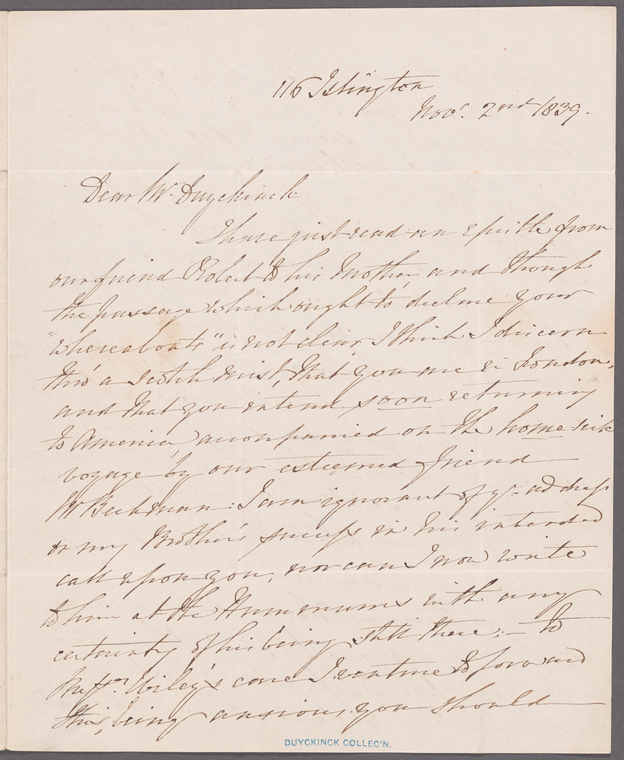 116 Islington
Novr. 2nd 1839.
Dear Mr. Duyckinck
I have just read an epistle from
our friend Robert to his Mother and though
the passage which ought to declare your
"whereabouts" is not clear, I think I discern
thro' a Scotch mist, that you are in London,
and that you intend soon returning
to America, accompanied on the home sick
voyage by our esteemed friend
Mr Beekman: I am ignorant of yr. address
or my Brother's success in his intended
call upon you, nor can I now write
to him at the Hummums with any
certainty of his being still there:- To
Wiley's care I venture to forward
this, being anxious you should
DUYCKINCK COLLEC'N.